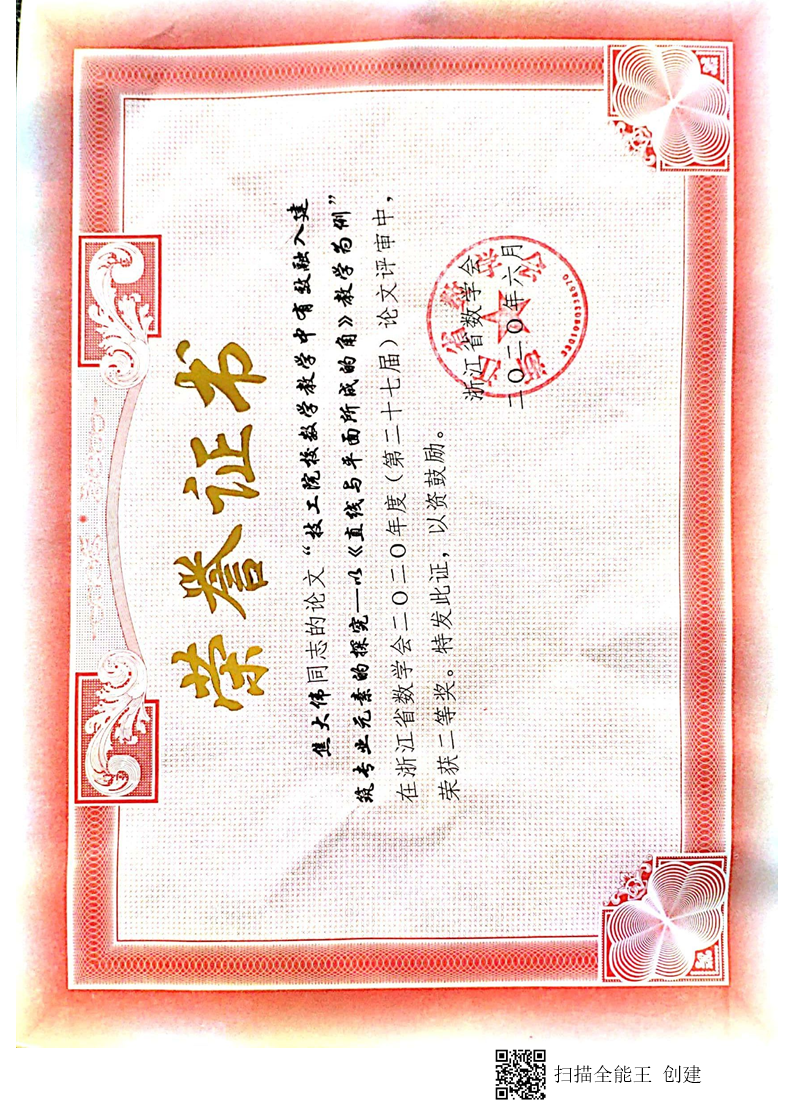 荣誉证书
焦大伟同志的论文“技工院校数学教学中有效融入建
筑专业元素的探究—以《直线与平面所成的角》教学为例”
在浙江省数学会二〇二〇年度（第二十七届）论文评审中，
荣获二等奖。特发此证，以资鼓励。
浙江省数学会
二〇二〇年六月
浙江省数学会
扫描全能王 创建